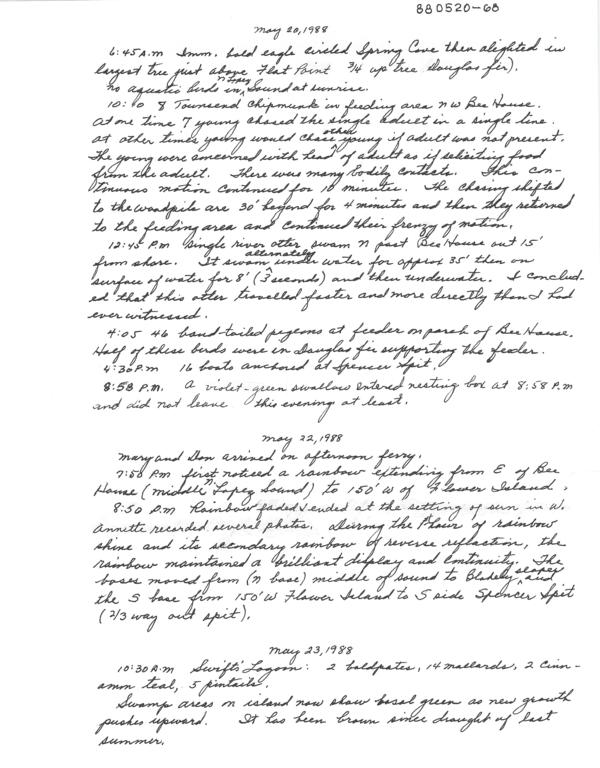 880520-68
May 20, 1988
6:45 A.M Imm. bald eagle circled Spring Cove then alighted in
largest tree just above Flat Point 3/4 up tree Douglas fir).
No aquatic birds in N Lopez Sound at sunrise.
10:10 8 Townsend Chipmunk in feeding area NW Bee House.
At one time 7 young chased the single adult in a single line.
At other times young would chase other young if adult was not present.
The young were concerned with head of adult as if soliciting food
from the adult. There were many bodily contacts. This con-
tinuous motion continued for 10 minutes. The chasing shifted
to the woodpile are 30' beyond for 4 minutes and then they returned
to the feeding area and continued their frenzy of motion.
12:45 P.M Single river otter swam N past Bee House out 15'
from shore. It swam alternately under water for approx 35' then on
surface of water for 8' (3 seconds) and then underwater. I conclud-
ed that this otter travelled faster and more directly than I had
ever witnessed.
4:05 46 band-tailed pigeons at feeder on porch of Bee House.
Half of these birds were in Douglas fir supporting the feeder.
4:30 P.M. 16 boats anchored at Spencer Spit.
8:58 P.M. A violet-green swallows entered nesting box at 8:58 P.M
and did not leave this evening at least.
May 22, 1988
Mary and Don arrived on afternoon ferry.
7:50 P.M first noticed a rainbow extending from E of Bee
House (middle N Lopez Sound) to 150' W of Flower Island.
8:50 P.M Rainbow faded & ended at the setting of sun in W.
Annette recorded several photos. During the 1 hour of rainbow
shine and its secondary rainbow of reverse reflection, the
rainbow maintained a brilliant display and continuity. The
bases moved from (N base) middle of sound to Blakely slopes and
the S base from 150' W Flower Island to S side Spencer Spit
(2/3 way out spit).
May 23, 1988
10:30 A.M Swift's Lagoon: 2 baldpates, 14 mallards, 2 cinn-
amon teal, 5 pintails.
Swamp areas on island now show basal green as new growth
pushes upward. It has been brown since drought of last
summer.